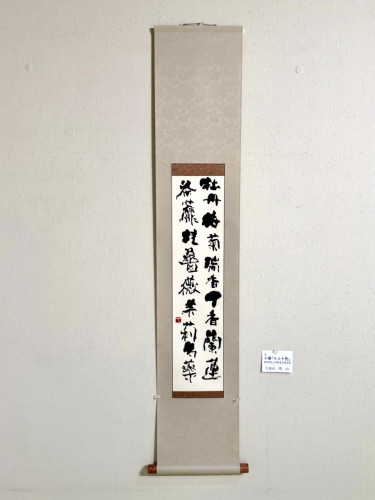 牡丹梅菊瑞香丁香蘭蓮
荼蘼桂薔薇茉莉芍藥